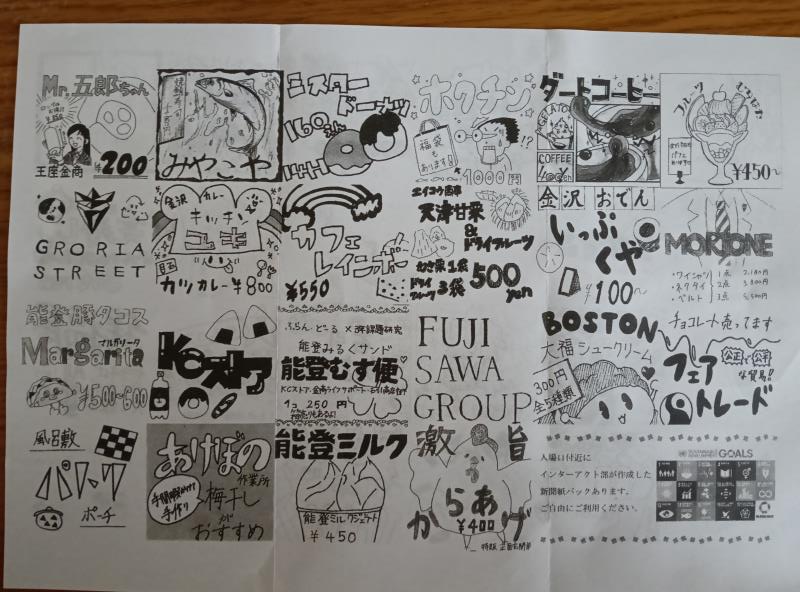 Mr.五郎ちゃん
王座金商
¥200
焼鯖寿司
みやこや
ミスター
ドーナッツ
160えん
ホクチン
福袋
もあります!
!?
1000円
ダートコーヒー
GELATO
COFFEE
400yen
フルーツ
むらはた
¥450〜
GRORIA
STREET
金沢カレー
キッチン
ユキ
カツカレー¥800
カフェ
レインボー
¥550
エイコウ商事
天津甘栗
&
ドライフルーツ
むき栗 1袋
ドライフルーツ 3袋
500yen
金沢おでん
いっぷくや
¥100〜
MORIONE
・ワイシャツ 1点 2,180円
・ネクタイ 2点
・ベルト 3点
能登豚タコス
マルガリータ
Margarita
¥500〜600
KCストア
ぶらん・どーる × 3年課題研究
能登みるくサンド
能登むす便
1コ 250円
FUJI
SAWA
GROUP
BOSTON
大福シュークリーム
300円
全5種類
チョコレート売ってます
公正で公平
な貿易!!
フェア
トレード
風呂敷
パトリ
ポーチ
あけぼの
作業所
手間暇かけた
手作り
梅干し
が
おすすめ
能登ミルク
能登ミルクジェラート
¥450
激旨
からあげ
¥400
入場口付近に
インターアクト部が作成した
新聞紙バックあります。
ご自由にご利用ください。
GOALS